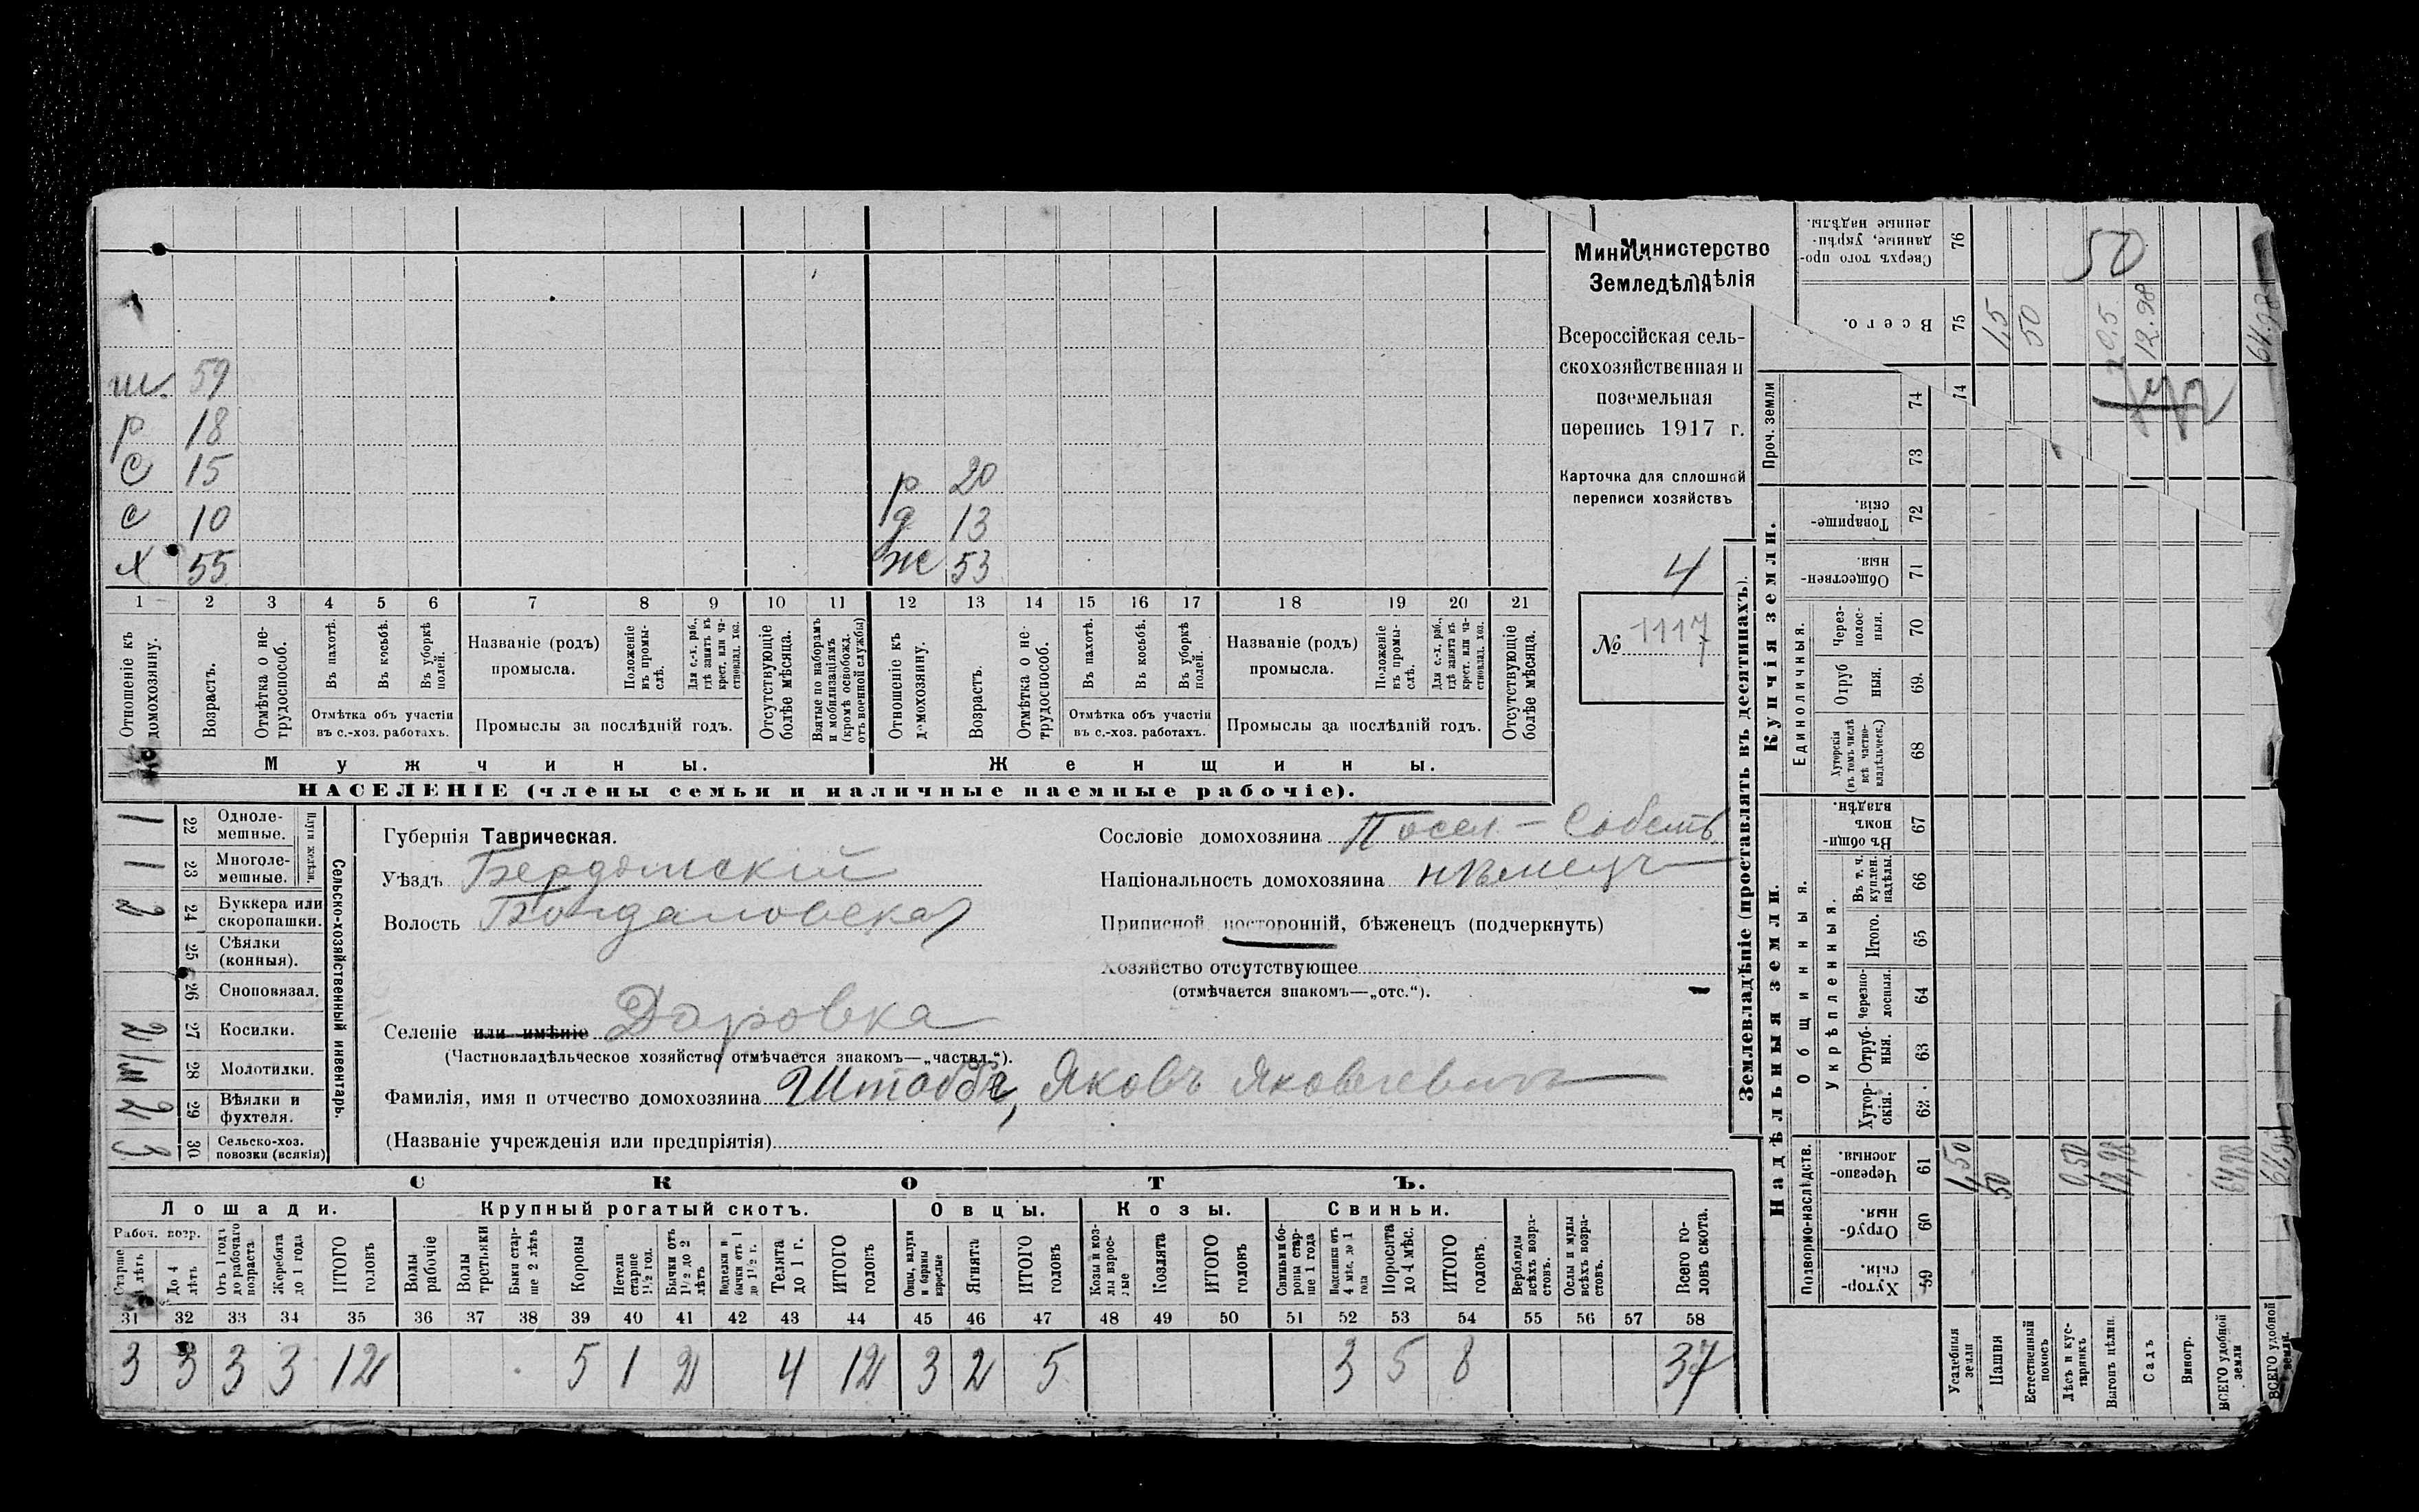 Министерство
Земледѣлія
Всероссійская сель-
скохозяйственная и
поземельная
перепись 1917 г.
Карточка для сплошной
переписи хозяйствъ
4
№ 1117
ш. 59
р 18
с 15
с 10
х 55
р 20
д 13
ж 53
1 2 3 4 5 6 7 8 9 10 11 12 13 14 15 16 17 18 19 20 21
Отношеніе къ домохозяину.
Возрастъ.
Отмѣтка о не-трудоспособ.
Въ пахотѣ.
Въ косьбѣ.
Въ уборкѣ полей.
Отмѣтка объ участіи
въ с.-хоз. работахъ.
Названіе (родъ)
промысла.
Положеніе въ промы-слѣ.
Для с.-х. раб., гдѣ занятъ къ крест. или ча-стновлад. хоз.
Промыслы за послѣдній годъ.
Отсутствующіе болѣе мѣсяца.
Взятые по наборамъ и мобилизаціямъ (кромѣ освобожд. отъ военной службы)
Отношеніе къ домохозяину.
Возрастъ.
Отмѣтка о не-трудоспособ.
Въ пахотѣ.
Въ косьбѣ.
Въ уборкѣ полей.
Отмѣтка объ участіи
въ с.-хоз. работахъ.
Названіе (родъ)
промысла.
Положеніе въ промы-слѣ.
Для с.-х. раб., гдѣ занята въ крест. или ча-стновлад. хоз.
Промыслы за послѣдній годъ.
Отсутствующіе болѣе мѣсяца.
Мужчины.
Женщины.
НАСЕЛЕНІЕ (члены семьи и наличные наемные рабочіе).
Сельско-хозяйственный инвентарь.
1 22 Одноле-мешные.
1 23 Многоле-мешные.
2 24 Буккера или скоропашки.
25 Сѣялки (конныя).
26 Сноповязал.
27 Косилки.
28 Молотилки.
29 Вѣялки и фухтеля.
30 Сельско-хоз. повозки (всякія)
Губернія Таврическая.
Уѣздъ Бердянскій
Волость Богдановская
Селеніе или имѣніе Даровка
(Частновладѣльческое хозяйство отмѣчается знакомъ—„частвл.“).
Сословіе домохозяина Посел.-Собств.
Національность домохозяина нѣмецъ
Приписной посторонній, бѣженецъ (подчеркнуть)
Хозяйство отсутствующее
(отмѣчается знакомъ—„отс.“).
Фамилія, имя и отчество домохозяина Штоббе, Яковъ Яковлевичъ
(Названіе учрежденія или предпріятія)
СКОТЪ.
Лошади. Крупный рогатый скотъ. Овцы. Козы. Свиньи.
Рабоч. возр.
Старше 4 лѣтъ
До 4 лѣтъ
Отъ 1 года до рабочаго возраста
Жеребята до 1 года
ИТОГО головъ
Волы рабочіе
Волы третьяки
Быки стар-ше 2 лѣтъ
Коровы
Нетели старше 1½ год.
Бычки отъ 1½ до 2 лѣтъ
Телята до 1 г.
ИТОГО головъ
Овцы, валухи и бараны взрослые
Ягнята
ИТОГО головъ
Козы и коз-лы взрос-лые
Козлята
ИТОГО головъ
Свиньи и бо-ровы стар-ше 1 года
Подсвинки отъ 4 мѣс. до 1 года
Поросята до 4 мѣс.
ИТОГО головъ.
Верблюды всѣхъ возра-стовъ.
Ослы и мулы всѣхъ возра-стовъ.
Всего го-ловъ скота.
31 32 33 34 35 36 37 38 39 40 41 42 43 44 45 46 47 48 49 50 51 52 53 54 55 56 57 58
3 3 3 3 12 5 1 2 4 12 3 2 5 3 5 8 37
Землевладѣніе (проставлять въ десятинахъ).
Надѣльныя земли.
Купчія земли.
Проч. земли
Подворно-наслѣдств.
Общинныя.
Укрѣпленныя.
Единоличныя.
Хутор-скія. 59
Отруб-ныя. 60
Черезпо-лосныя. 61
Хутор-скія. 62
Отруб-ныя. 63
Черезпо-лосныя. 64
Итого. 65
Въ т. ч. куплен. надѣлы. 66
Въ общи-номъ владѣн. 67
Хуторскія (въ томъ числѣ всѣ частно-владѣльческ.) 68
Отруб ныя. 69
Через-полос-ныя. 70
Обществен-ныя. 71
Товарище-скія. 72
73
74
Всего. 75
Сверхъ того про-данные, укрѣп-ленные надѣлы. 76
Усадебныя земли 1,50 1,5
Пашня 50 50
Естественный покосъ
Лѣсъ и кус-тарникъ 0,50 0,5
Выгонъ цѣлин. 12,98 12.98
Садъ
Виногр.
ВСЕГО удобной земли 64,98 64.98
ВСЕГО удобной земли. 64,98
50